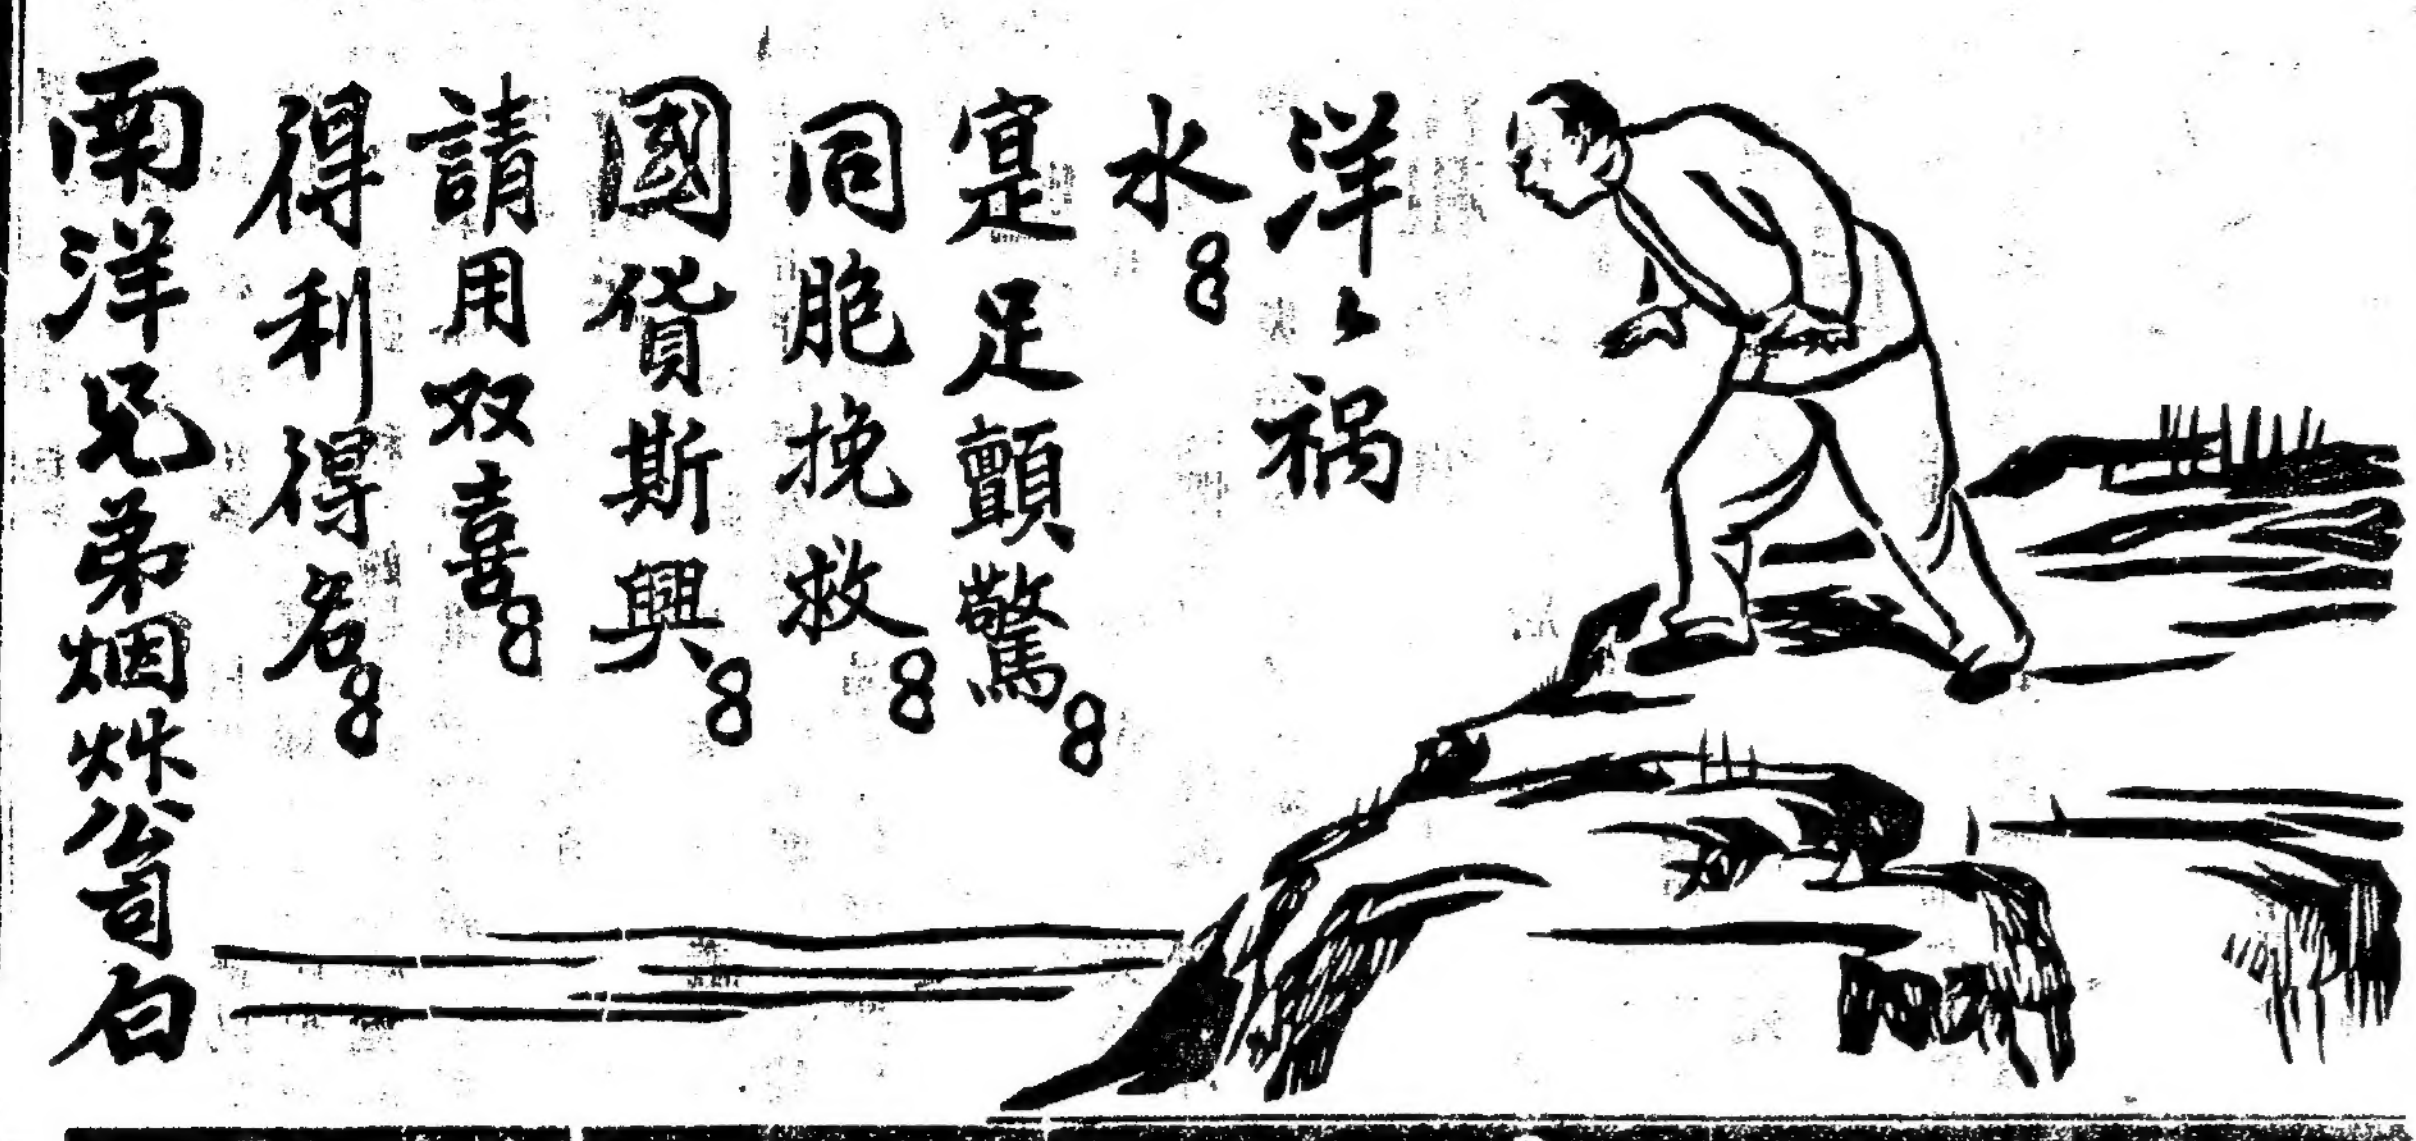 洋〻禍
水。
寔足顫驚。
同胞挽救。
國貨斯興。
請用双喜。
得利得名。
南洋兄弟烟艸公司白